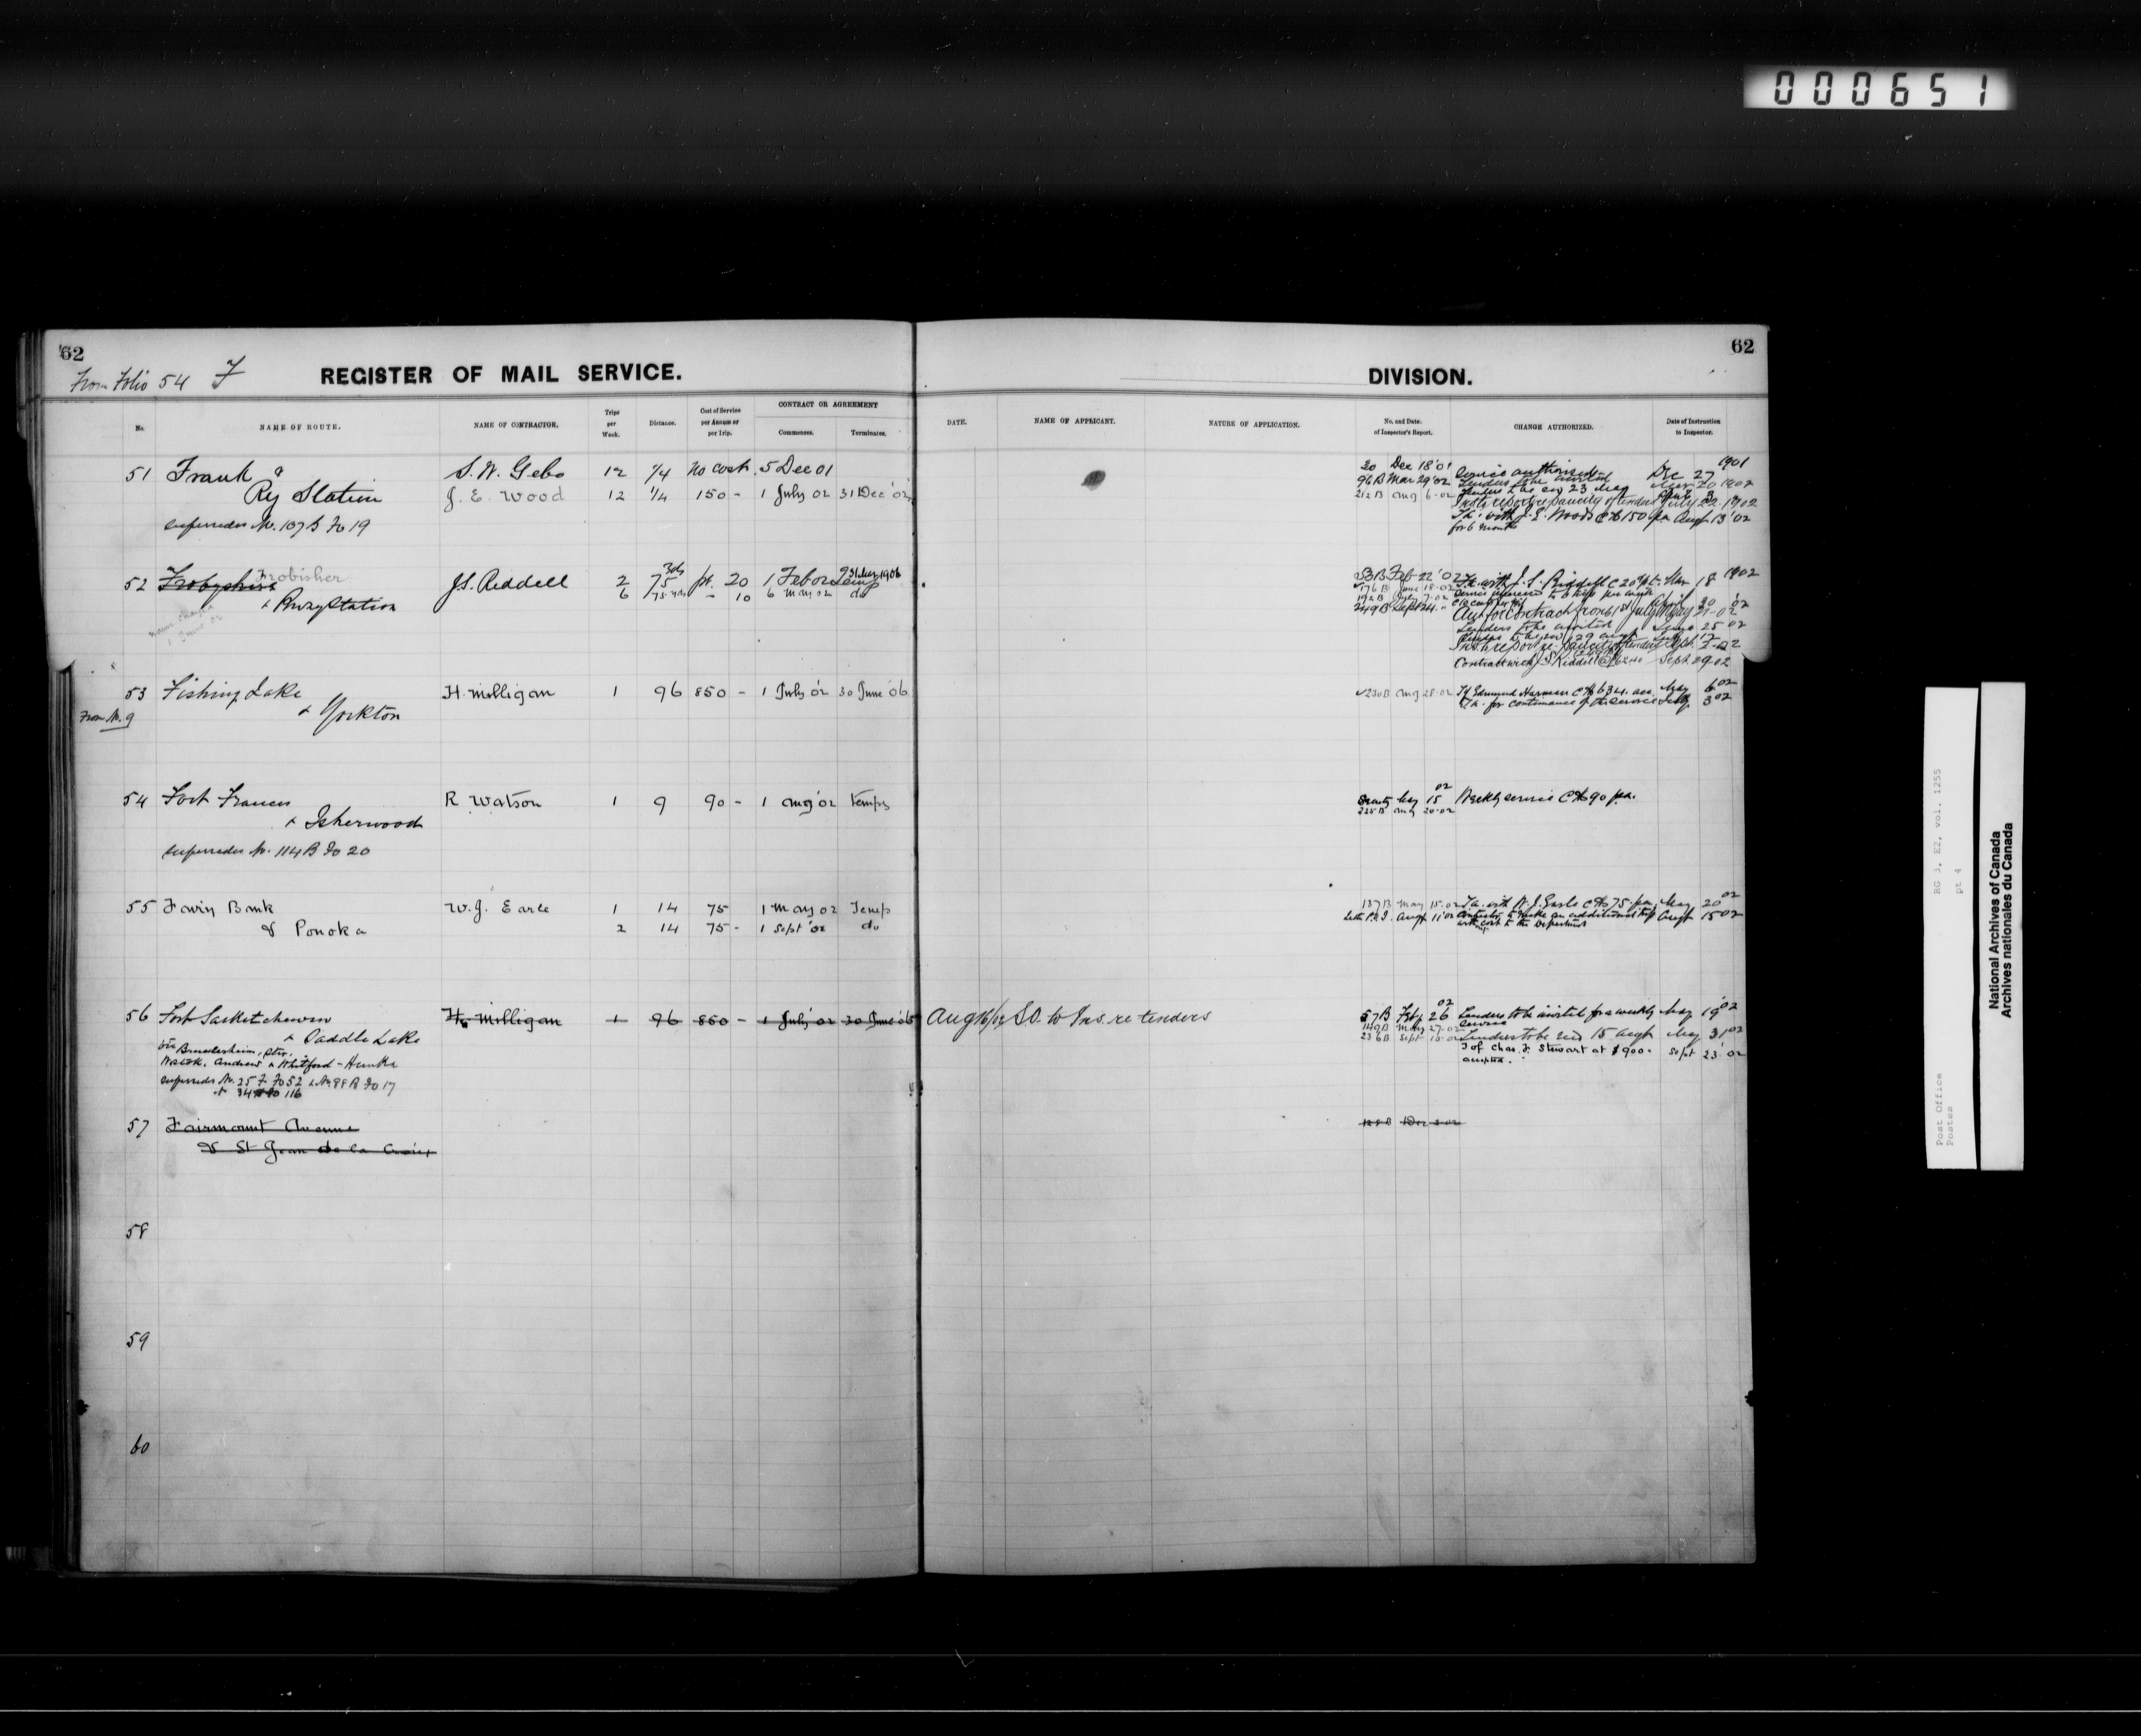 000651
62
From Folio 54 F
REGISTER OF MAIL SERVICE.
No.
NAME OF ROUTE.
NAME OF CONTRACTOR.
Trips per Week.
Distance.
Cost of Service per Annum or per Trip.
CONTRACT OR AGREEMENT
Commences.
Terminates.
51 Frank & S. W. Gebo 12 1/4 No cost 5 Dec 01
Ry Station J. E. Wood 12 1/4 150 - 1 July 02 31 Dec '02
supersedes No. 107 B Fo 19
52 Frobyshire Frobisher J.S. Riddell 2 75 yds pt. 20 1 Feb 02 Temp
& Rwy Station 6 75 yds - 10 6 May 02 do
name changed
1 June 02
53 Fishing Lake H. Milligan 1 96 850 - 1 July '02 30 June '06
From No. 9 & Yorkton
54 Fort Frances R Watson 1 9 90 - 1 Aug '02 Tempy
& Isherwood
supersedes No. 114 B Fo 20
55 Fawn Bank W. J. Earle 1 14 75 1 May 02 Temp
& Ponoka 2 14 75 - 1 Sept '02 do
56 Fort Saskatchewan H. Milligan 1 96 850 - 1 July '02 30 June '06
& Saddle Lake
via Bruderheim, Star,
Wostok, Andrew & Whitford - Hunka
supersedes No. 25 F Fo 52 & No. 88 B Fo 17
116
57 Fairmount Avenue
& St Jean de la Croix
58
59
60
62
DIVISION.
DATE.
NAME OF APPLICANT.
NATURE OF APPLICATION.
No. and Date. of Inspector's Report.
CHANGE AUTHORIZED.
Date of Instruction to Inspector.
20 Dec 18 '01 Service authorized Dec 27 1901
96 B Mar 29 '02 Tenders to be invited
212 B Aug 6-02 Tenders to be rec 23 May
Insts report re paucity of tenders July 22 1902
T.a. with J. E. Woods @ $150 pa Aug 13 '02
for 6 months
53 B Feb 22 '02 T.a. with J. S. Riddell @ 20 Mar 18 1902
176 B June 18-02 Service increased to 6 trips per week
192 B July 7-02
249 B Sept 24 Auth for contract from 1st July
Tenders to be invited June 25 02
Insts report re paucity of tenders Sept. 2-02
Contract with J S Riddell Sept 29-02
230 B Aug 28-02 T of Edmund Harman May 6 02
T.a. for continuance of the service July 3 02
Aug 15 02 Weekly service @ $90 pa.
225 B Aug 20-02
137 B May 15-02 T.a. with W. J. Earle @ $75 pa. May 20 02
Aug 11 '02 Contractor to make an additional trip Aug 15 02
without cost to the Department
Aug 16/02 S.O. to Ins. re tenders
57 B Feb 26 02 Tenders to be invited for a weekly May 19 '02
149 B May 27-02 service
236 B Sept 15-02 Tenders to be rec 15 Aug May 31 02
T of Chas. F. Stewart at $900 - Sept 23 '02
accepted.
Post Office
Postes
RG 3, E2, vol. 1255
pt 4
National Archives of Canada
Archives nationales du Canada